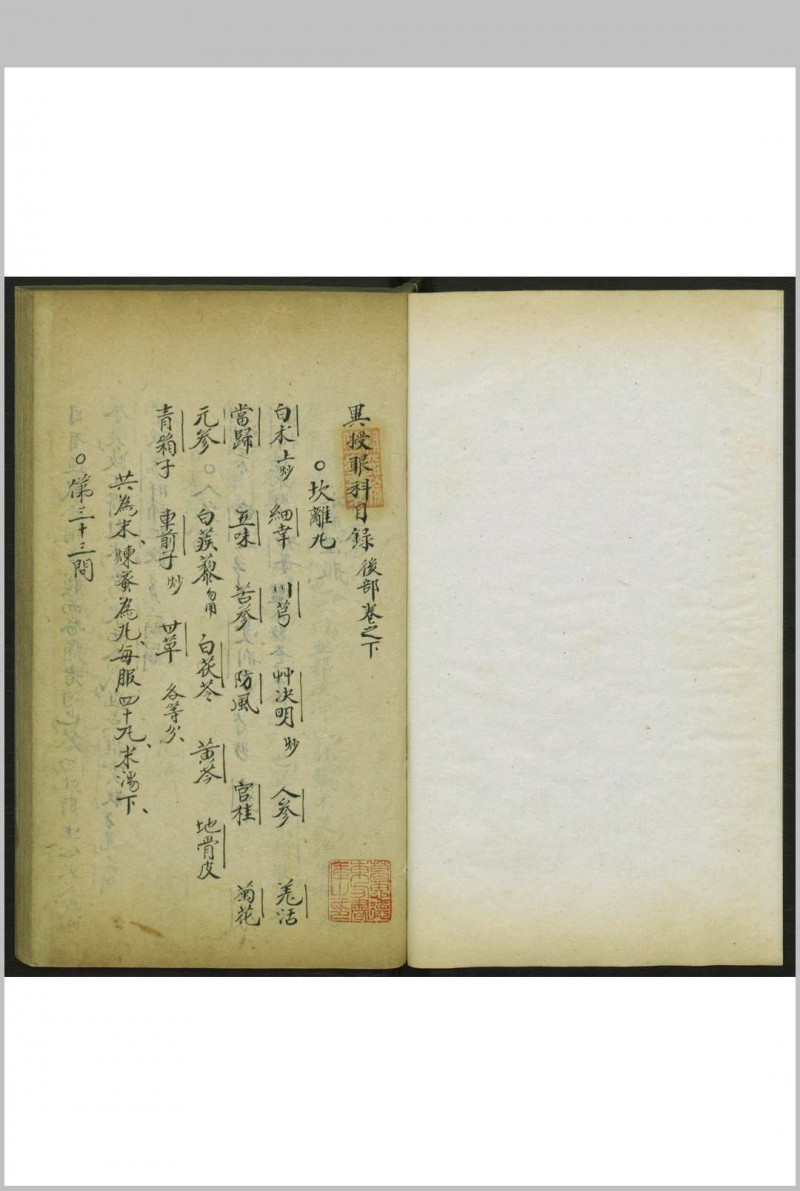 異授眼科目錄 後部卷之下
○坎離丸
白朮 土炒 細辛 川芎 艸決明 炒 人參 羌活
當歸 五味 苦參 防風 官桂 菊花
元參 白蒺藜 白茯苓 黃芩 地骨皮
青葙子 車前子 炒 甘草 各等分、
共為末、煉蜜為丸、每服四十丸、米湯下、
○第三十三問